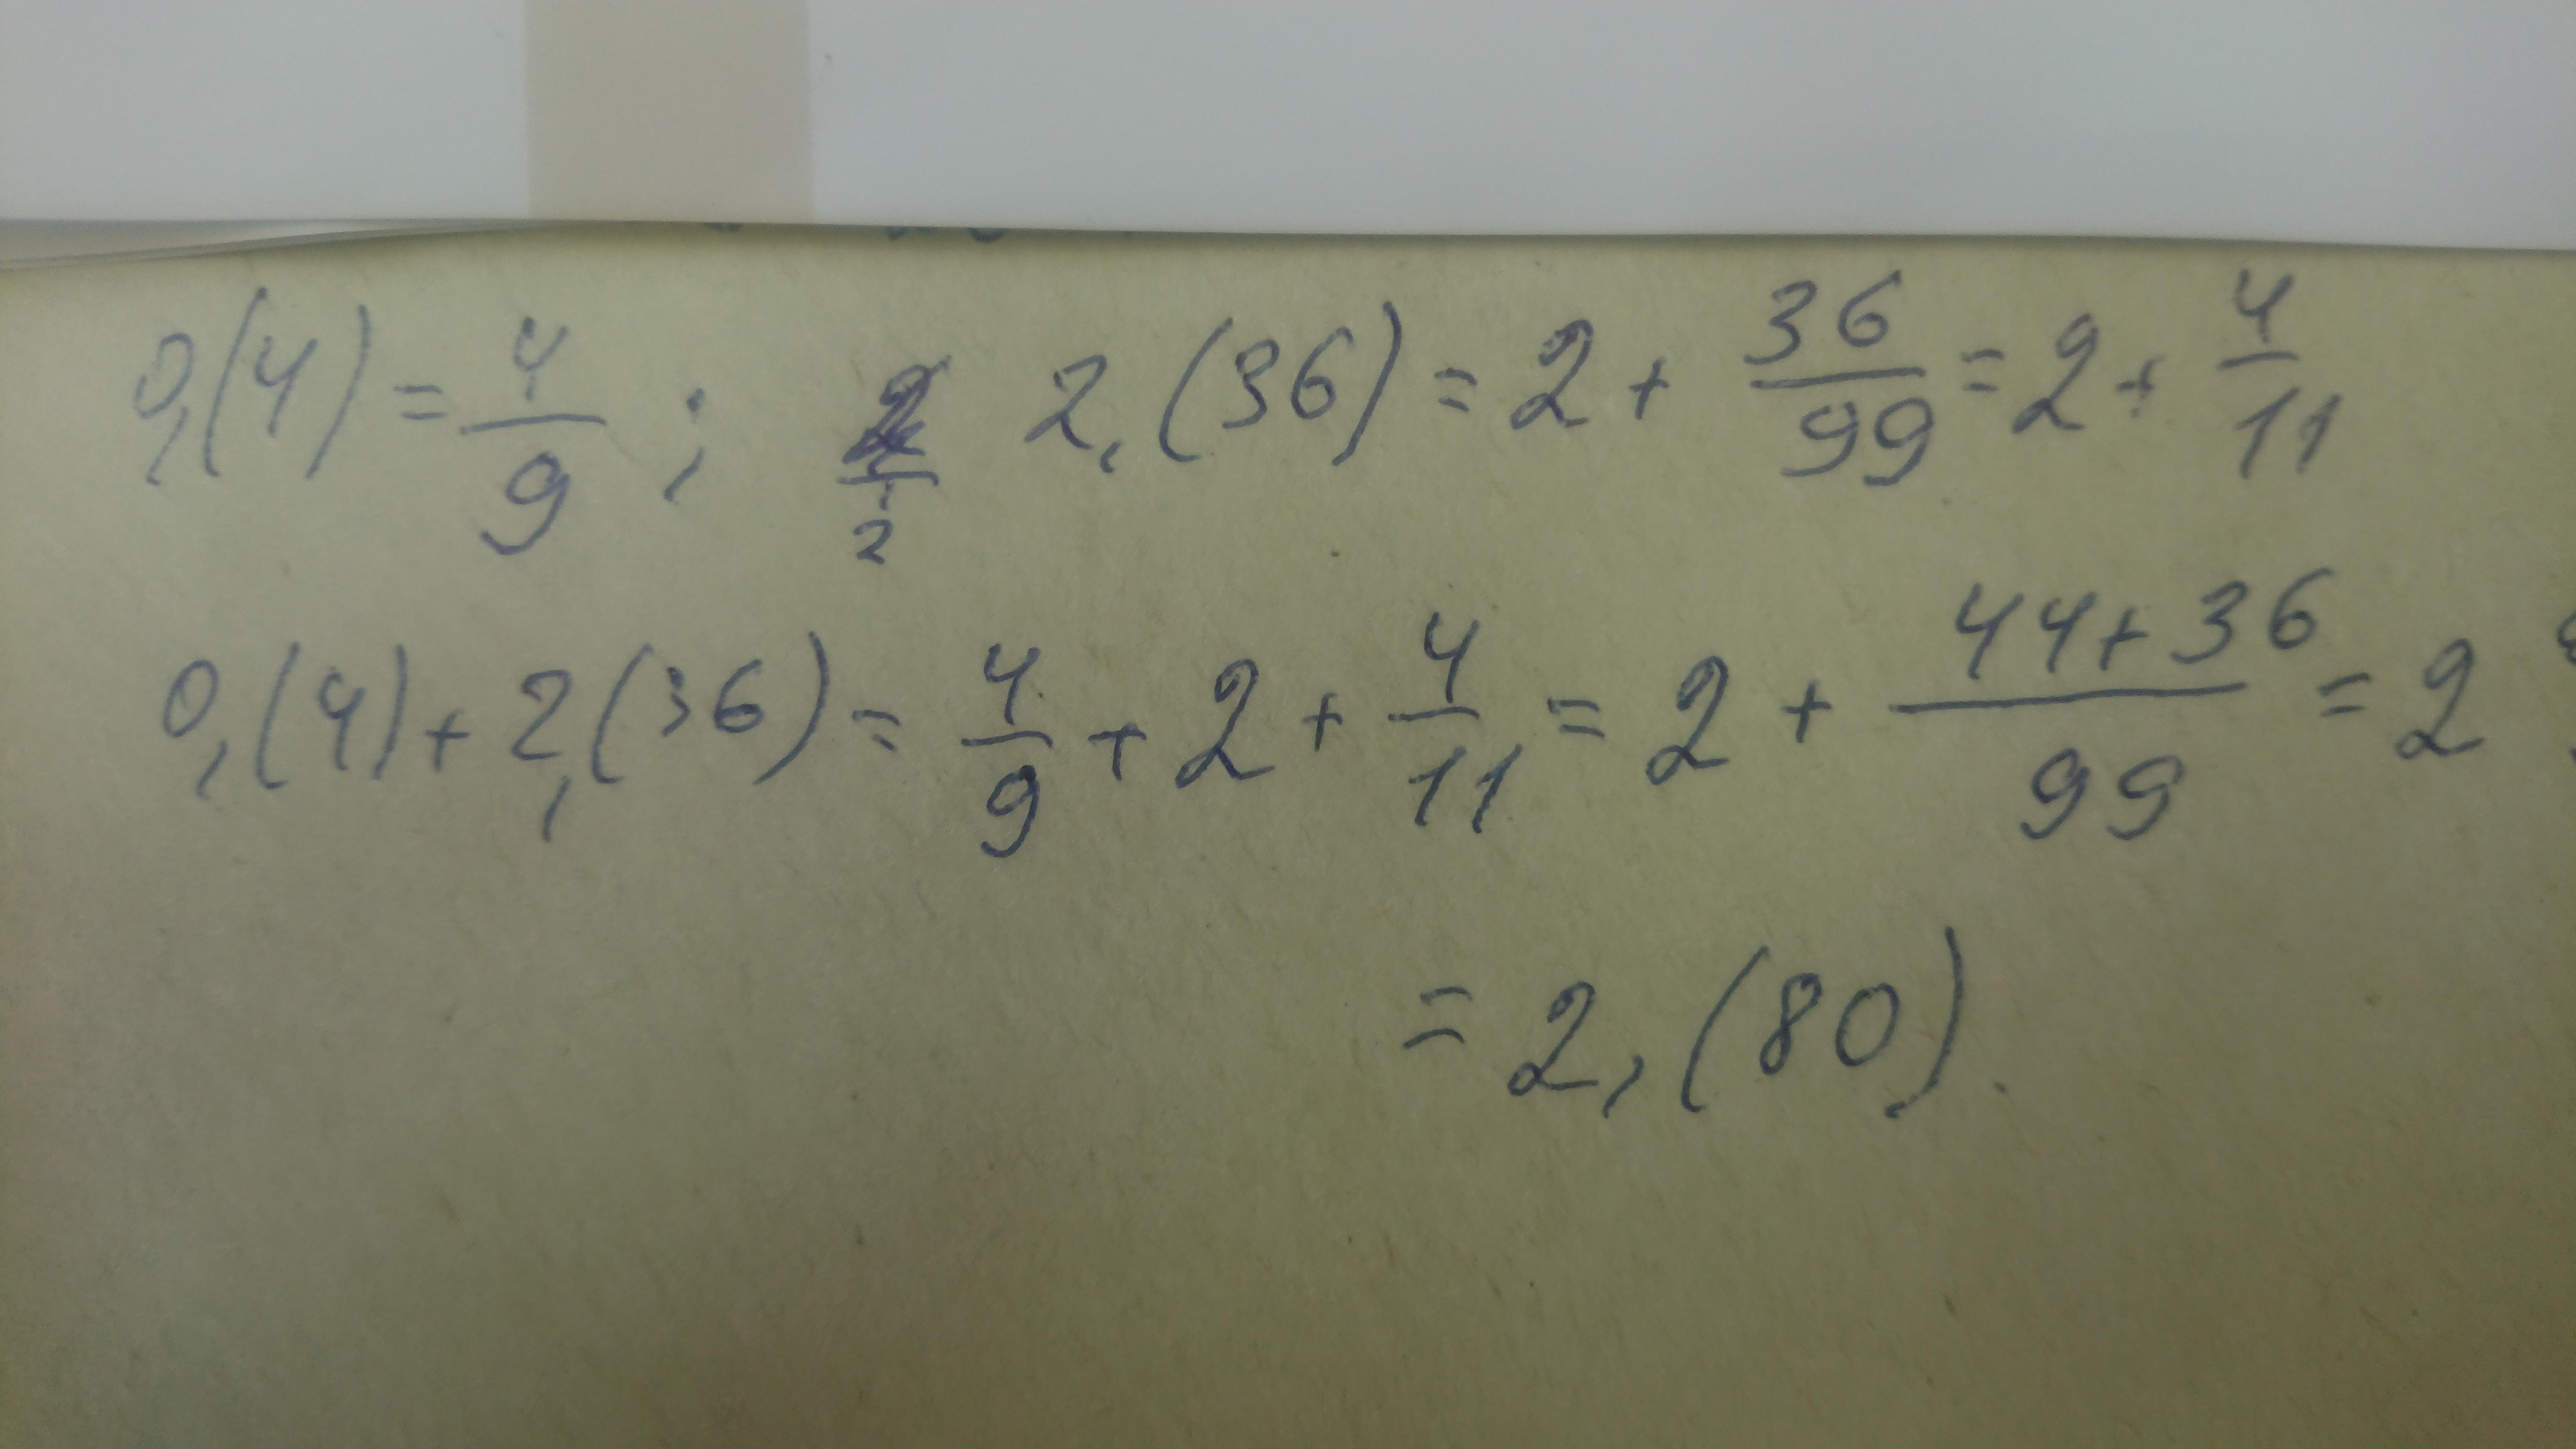 0,(4) = 4/9 ; 2,(36) = 2 + 36/99 = 2 + 4/11
0,(4) + 2,(36) = 4/9 + 2 + 4/11 = 2 + 44+36/99 = 2
= 2,(80).